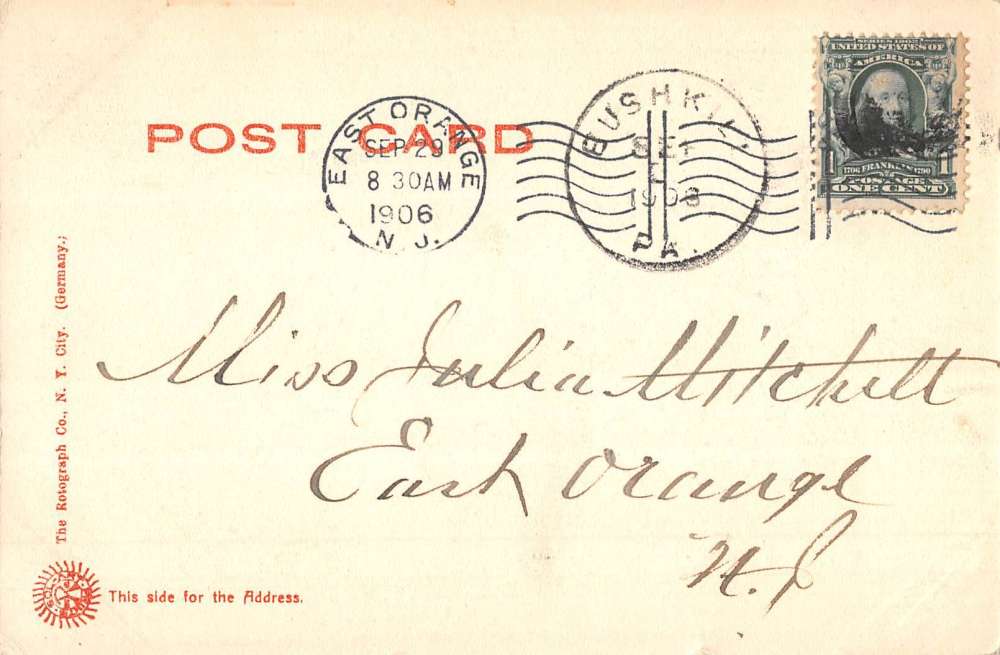 POST CARD
EAST ORANGE
SEP 29
8 30AM
1906
N. J.
BUSHKILL
SEP
1906
PA.
SERIES 1902
UNITED STATES OF
AMERICA
1706 FRANKLIN 1790
POSTAGE
1 ONE CENT 1
Miss Julia Mitchell
East Orange
N.J
The Rotograph Co., N. Y. City. (Germany.)
This side for the Address.